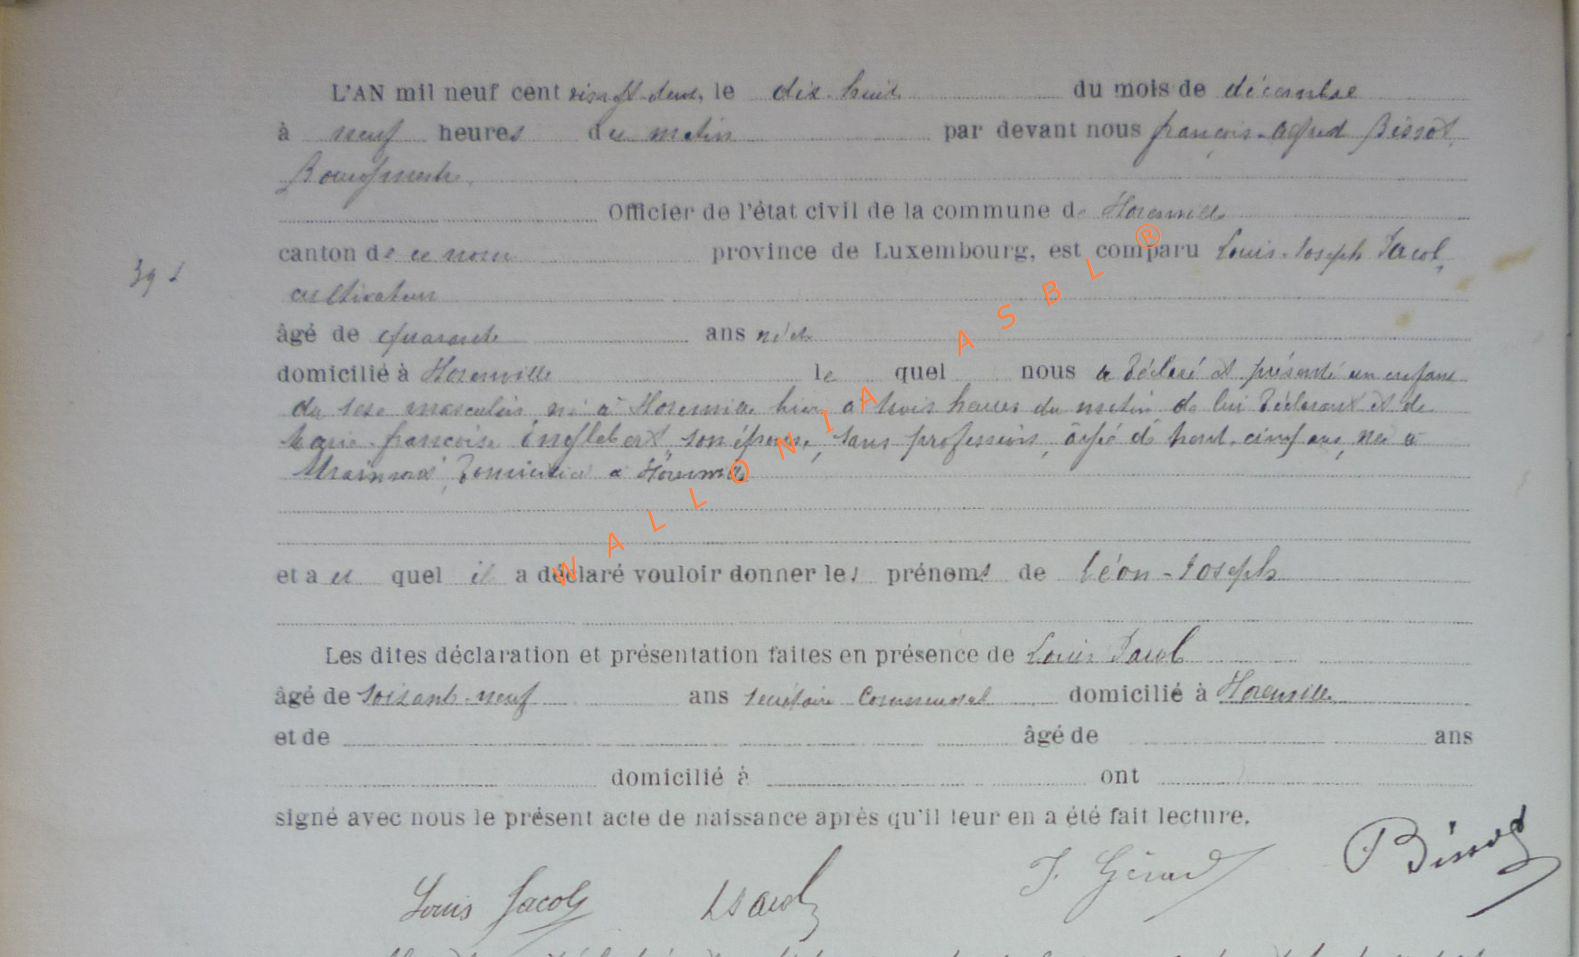 L'AN mil neuf cent vingt-deux, le dix-huit du mois de décembre
à neuf heures du matin par devant nous françois-Alfred Bissot,
Bourgmestre,
Officier de l'état civil de la commune de Horenville
canton de ce nom province de Luxembourg, est comparu Louis-Joseph Jacob,
39
cultivateur
âgé de quarante ans né à
domicilié à Horenville le quel nous a déclaré et présenté un enfant
du sexe masculin né à hier à trois heures du matin de lui déclarant et de
Marie-françoise Englebert, son épouse, sans profession, âgée de trent-cinq ans, née à
domiciliée à
et a el quel il a déclaré vouloir donner les prénoms de Léon-Joseph
Les dites déclaration et présentation faites en présence de Louis Jacob
âgé de soixante-neuf ans secrétaire Communal domicilié à Horenville
et de âgé de ans
domicilié à ont
signé avec nous le présent acte de naissance après qu'il leur en a été fait lecture.
Louis Jacob LJacob J. Gérard Bissot
WALLONIA ASBL ®